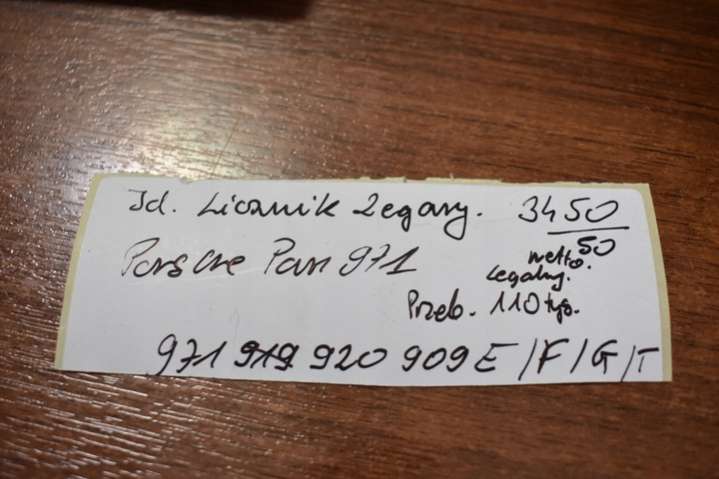 Id. Licznik Zegary. 3450
50
Porsche Pan 971 netto.
Legalny.
Przeb. 110 tys.
971 919 920 909 E /F/G/T